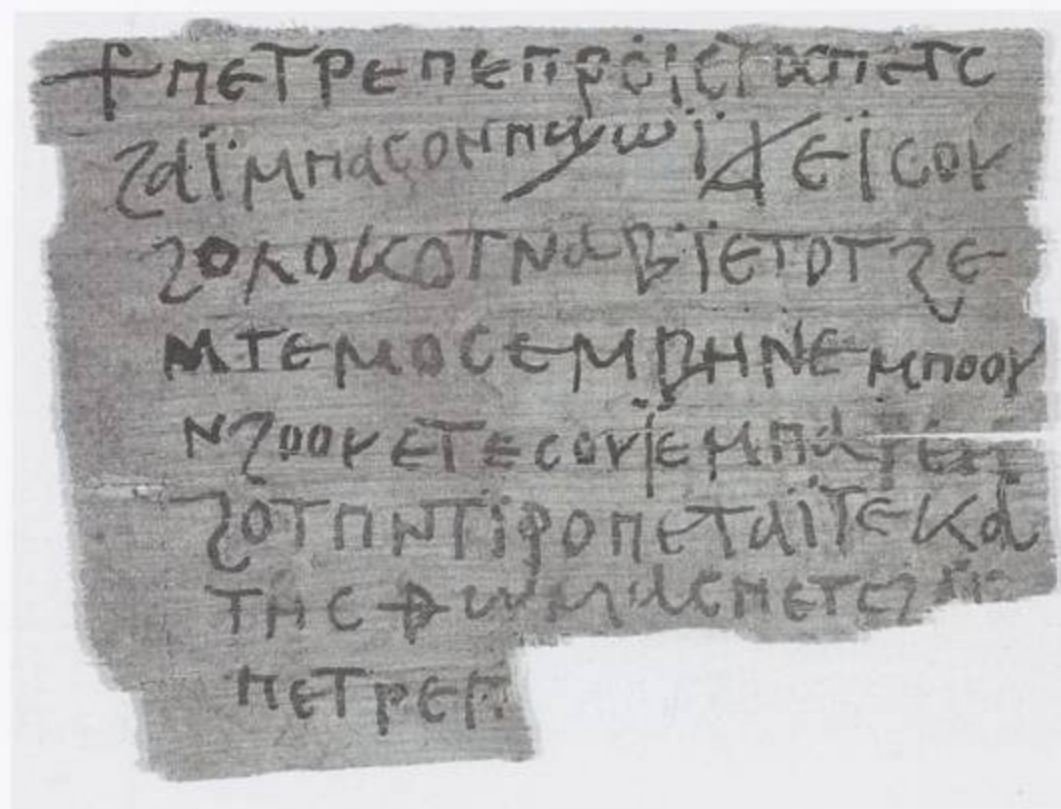 ⳨ ⲡⲉⲧⲣⲉⲡⲉⲡⲣⲟⲓⲥⲧⲱⲡⲉⲧⲥ
ϩⲁⲓ̈ⲙⲡⲁⲥⲟⲛⲡⲁϣⲱⲓ̈ϫⲉⲓ̈ⲥⲟⲩ
ϩⲟⲗⲟⲕⲟⲧⲛⲁⲃⲓ̈ⲉⲧⲟⲧϩⲉ
ⲙⲧⲉⲙⲟⲥⲉⲙⲃⲏⲛⲉⲙⲡⲟⲟⲩ
ⲛϩⲟⲟⲩⲉⲧⲉⲥⲟⲩⲓ̈ⲉⲙⲡⲁⲣⲉⲙ
ϩⲟⲧⲡⲛⲧⲓⲣⲟⲡⲉⲧⲁⲓ̈ⲧⲉⲕⲁ
ⲧⲏⲥⲑⲱⲙⲁⲥⲡⲉⲧⲥϩⲁⲓ
ⲡⲉⲧⲣⲉⲡ